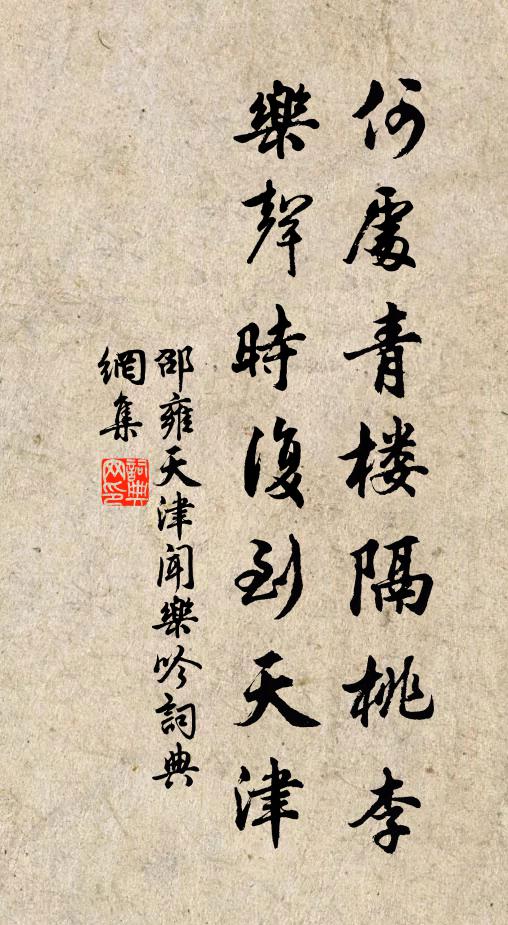 何處青楼隔桃李
樂聲時復到天津
邵雍天津闻樂吟詞典
網集
詞典
网印